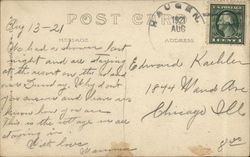 Aug 13-21
POST CARD
HAUGEN
1921
AUG
MESSAGE
ADDRESS
We had a shower last
night and are staying
at the resort on the island
over Sunday. Why don't
you answer and leave us
know how you are
This is the cottage we are
staying in.
With love
Mamma
Edward Kaehler
1844 Ave
Chicago Ill